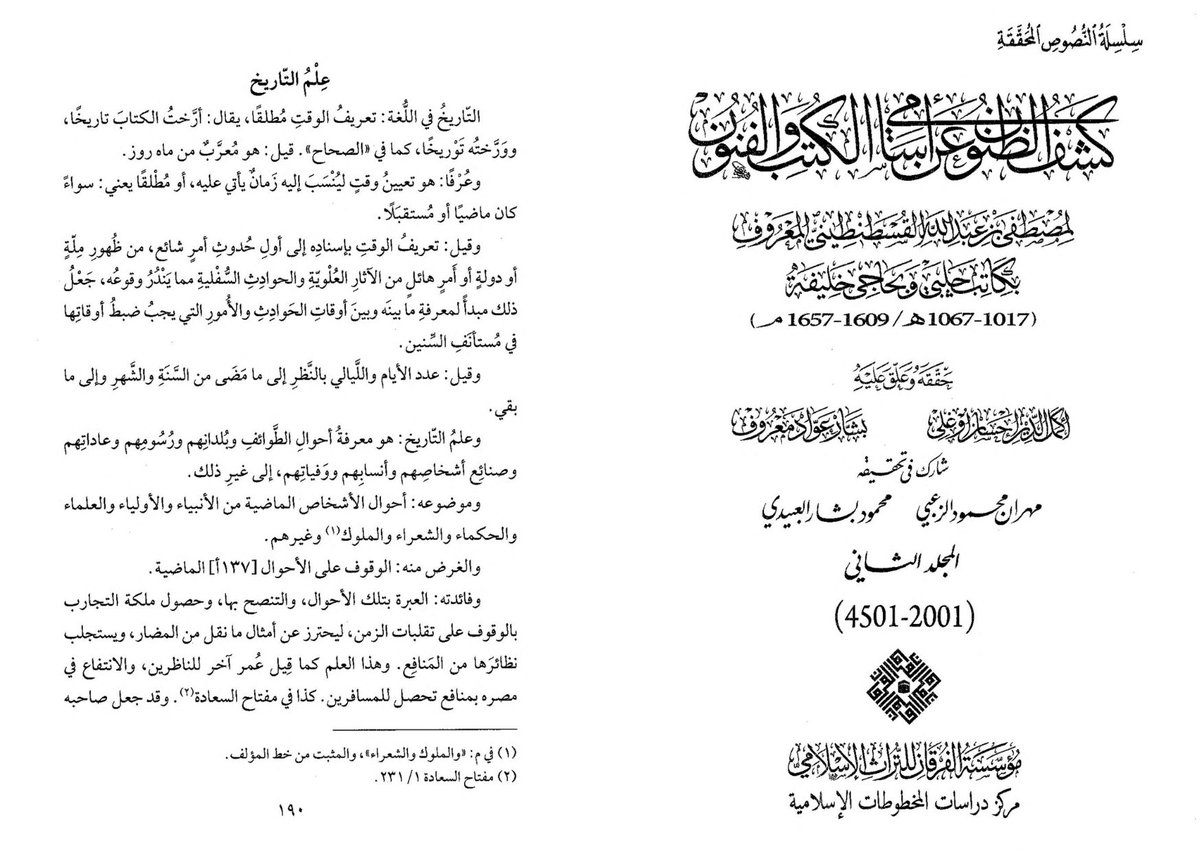 سِلْسِلَةُ النُّصُوصِ المُحَقَّقَةِ
كشف الظنون عن أسامي الكتب والفنون
لمصطفى بن عبد الله القسطنطيني المعروف
بكاتب جلبي وبحاجي خليفة
(1017-1067 هـ / 1609-1657 م)
حققه وعلق عليه
أكمل الدين إحسان أوغلي بشار عواد معروف
شارك في تحقيقه
مهران محمود الزعبي محمود بشار العبيدي
المجلد الثاني
(4501-2001)
مؤسسة الفرقان للتراث الإسلامي
مركز دراسات المخطوطات الإسلامية
عِلْمُ التّاريخ
التّاريخُ في اللُّغة: تعريفُ الوقتِ مُطلقًا، يقال: أرَّختُ الكتابَ تاريخًا،
وورَّخته تَوْريخًا، كما في «الصحاح». قيل: هو مُعرَّبٌ من ماه روز.
وعُرْفًا: هو تعيينُ وقتٍ ليُنْسَبَ إليه زَمانٌ يأتي عليه، أو مُطْلقًا يعني: سواءً
كان ماضيًا أو مُستقبَلًا.
وقيل: تعريفُ الوقتِ بإسنادِه إلى أولِ حُدوثِ أمرٍ شائع، من ظُهورِ مِلّةٍ
أو دولةٍ أو أمرٍ هائلٍ من الآثارِ العُلْويّةِ والحوادثِ السُّفْليةِ مما يَنْدُرُ وقوعُه، جَعْلُ
ذلك مبدأً لمعرفةِ ما بينَه وبينَ أوقاتِ الحَوادِثِ والأُمورِ التي يجبُ ضبطُ أوقاتِها
في مُستأنَفِ السِّنين.
وقيل: عدد الأيام واللَّيالي بالنَّظرِ إلى ما مَضَى من السَّنَةِ والشَّهرِ وإلى ما
بقي.
وعلمُ التّاريخ: هو معرفةُ أحوالِ الطَّوائفِ وبُلدانِهم ورُسُومِهم وعاداتِهم
وصنائعِ أشخاصِهم وأنسابِهم ووَفياتِهم، إلى غيرِ ذلك.
وموضوعه: أحوال الأشخاص الماضية من الأنبياء والأولياء والعلماء
والحكماء والشعراء والملوك(١) وغيرهم.
والغرض منه: الوقوف على الأحوال [١٣٧أ] الماضية.
وفائدته: العبرة بتلك الأحوال، والتنصح بها، وحصول ملكة التجارب
بالوقوف على تقلبات الزمن، ليحترز عن أمثال ما نقل من المضار، ويستجلب
نظائرَها من المَنافِع. وهذا العلم كما قِيل عُمر آخر للناظرين، والانتفاع في
مصره بمنافع تحصل للمسافرين. كذا في مفتاح السعادة(٢). وقد جعل صاحبه
(١) في م: «والملوك والشعراء»، والمثبت من خط المؤلف.
(٢) مفتاح السعادة ١/ ٢٣١.
١٩٠